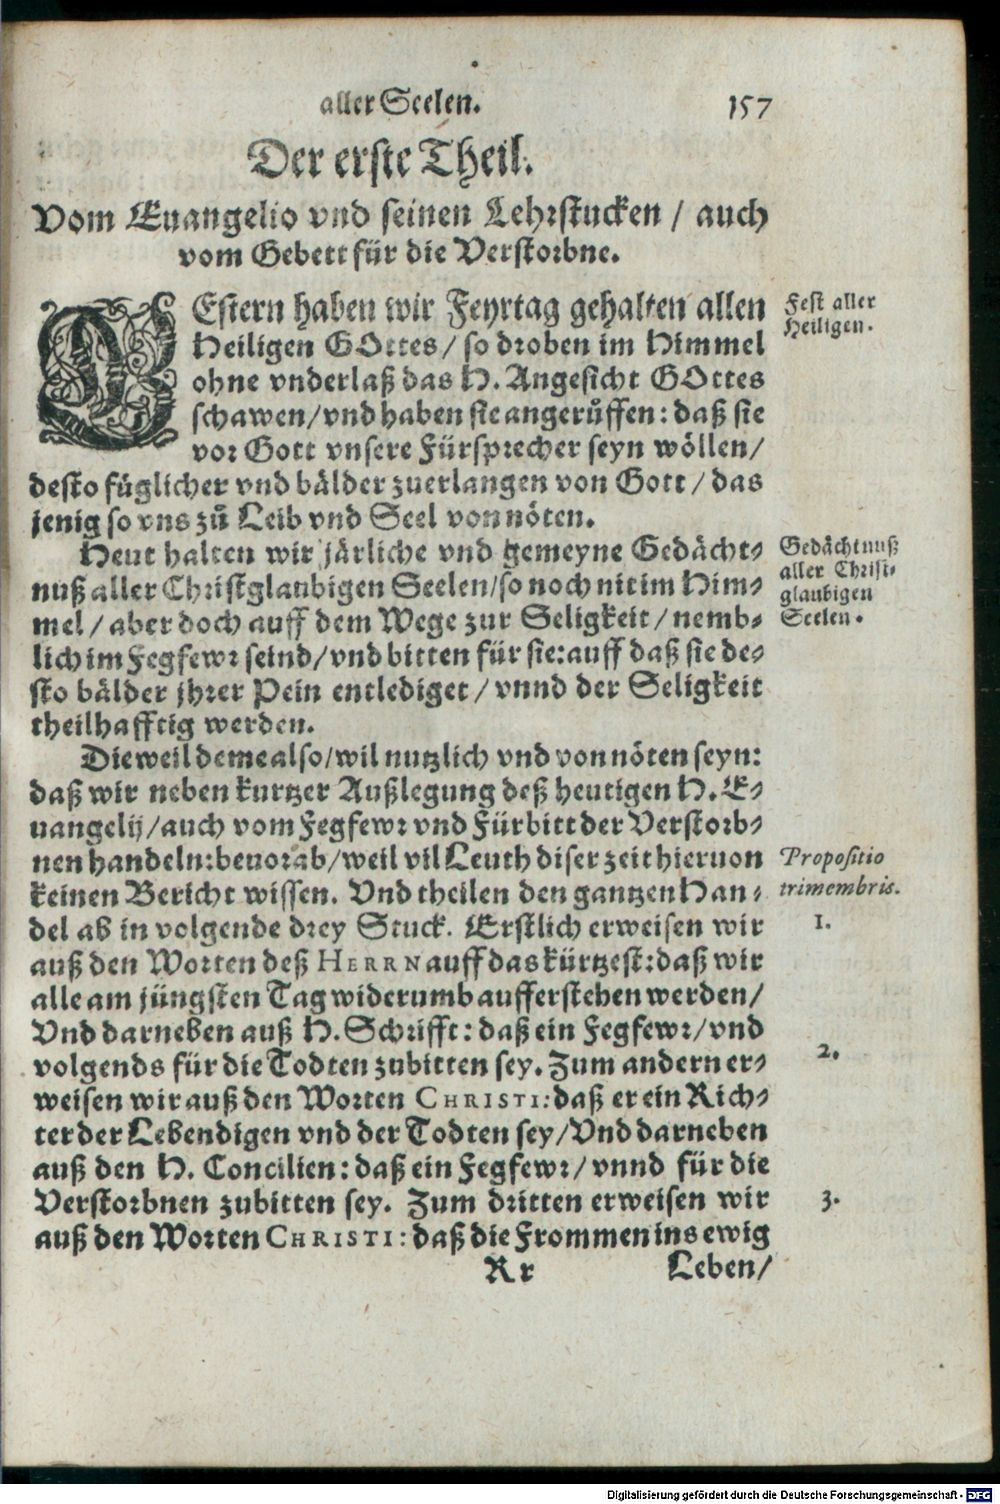 aller Seelen. 157
Der erste Theil.
Vom Euangelio vnd seinen Lehrstucken / auch
vom Gebett für die Verstorbne.
GEstern haben wir Feyrtag gehalten allen
Heiligen GOttes / so droben im Himmel
ohne vnderlaß das H. Angesicht GOttes
schawen / vnd haben sie angerůffen: daß sie
vor Gott vnsere Fürsprecher seyn wöllen /
desto füglicher vnd bälder zuerlangen von Gott / das
jenig so vns zů Leib vnd Seel von nöten.
Fest aller
Heiligen.
Heut halten wir järliche vnd gemeyne Gedächt-
nuß aller Christglaubigen Seelen / so noch nit im Him-
mel / aber doch auff dem Wege zur Seligkeit / nemb-
lich im Fegfewr seind / vnd bitten für sie: auff daß sie de-
sto bälder jhrer Pein entlediget / vnnd der Seligkeit
theilhafftig werden.
Gedächtnuß
aller Christ-
glaubigen
Seelen.
Dieweil deme also / wil nutzlich vnd von nöten seyn:
daß wir neben kurtzer Außlegung deß heutigen H. E-
uangelij / auch vom Fegfewr vnd Fürbitt der Verstorb-
nen handeln: beuorab / weil vil Leuth diser zeit hieruon
keinen Bericht wissen. Vnd theilen den gantzen Han-
del ab in volgende drey Stuck. Erstlich erweisen wir
auß den Worten deß HERRN auff das kürtzest: daß wir
alle am jüngsten Tag widerumb aufferstehen werden /
Vnd darneben auß H. Schrifft: daß ein Fegfewr / vnd
volgends für die Todten zubitten sey. Zum andern er-
weisen wir auß den Worten CHRISTI: daß er ein Rich-
ter der Lebendigen vnd der Todten sey / Vnd darneben
auß den H. Concilien: daß ein Fegfewr / vnnd für die
Verstorbnen zubitten sey. Zum dritten erweisen wir
auß den Worten CHRISTI: daß die Frommen ins ewig
Propositio
trimembris.
1.
2.
3.
Rr Leben /
Digitalisierung gefördert durch die Deutsche Forschungsgemeinschaft - DFG